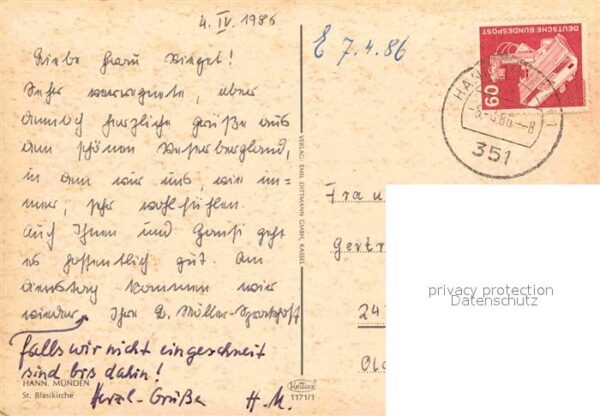 4. IV. 1986
Liebe Frau Siegel!
Sehr verregnete, aber
dennoch herzliche Grüße aus
dem schönen Weserbergland,
in dem wir uns, wie im-
mer, sehr wohl fühlen.
Auch Ihnen und Hansi geht
es hoffentlich gut. Am
Dienstag kommen wir
wieder. Ihre D. Müller-Sprockhoff
falls wir nicht eingeschneit
sind bis dahin!
Herzl. Grüße H. M.
HANN. MÜNDEN
St. Blasikirche
VERLAG: EMIL DITTMANN GMBH, KASSEL
Krüger
1171/1
E 7.4.86
DEUTSCHE BUNDESPOST
60
HANN
1
-5.-4.86.-8
351
Frau
Gertr
24
Old
privacy protection
Datenschutz